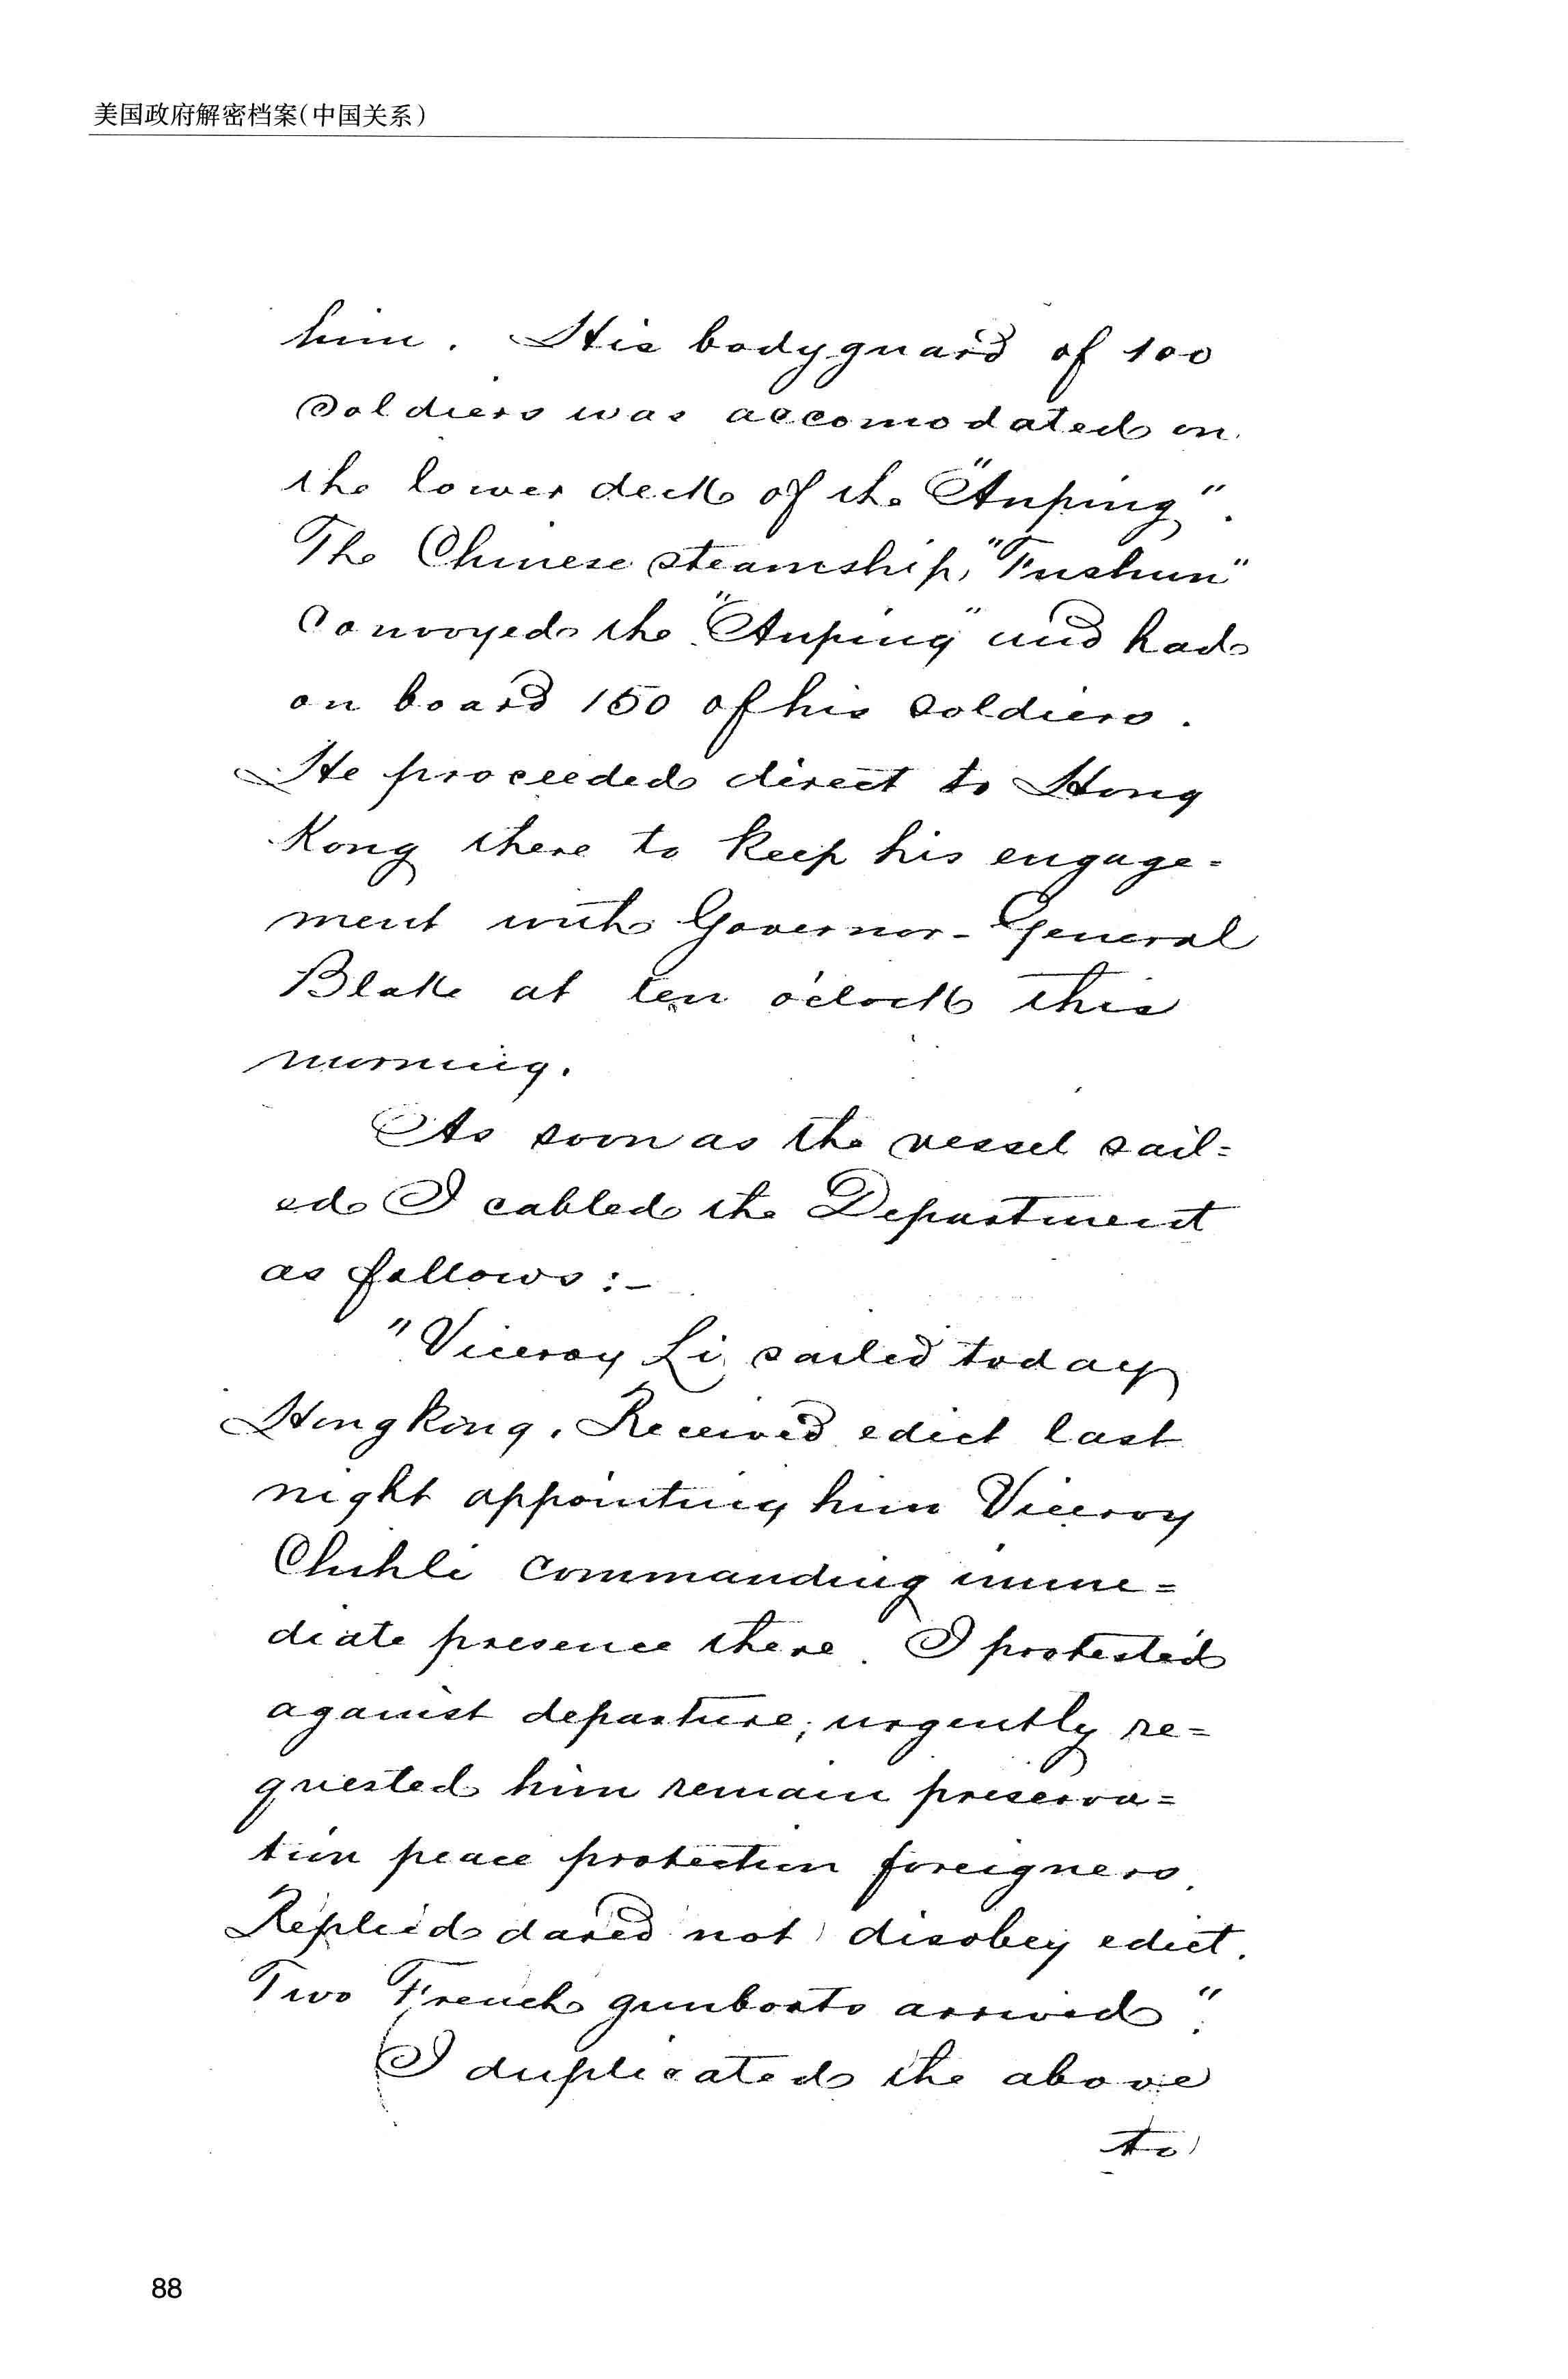 美国政府解密档案(中国关系)
him. His bodyguard of 100
soldiers was accomodated on
the lower deck of the "Anping".
The Chinese steamship, "Fushun"
convoyed the "Anping" and had
on board 150 of his soldiers.
He proceeded direct to Hong
Kong there to keep his engage=
ment with Governor-General
Blake at ten o'clock this
morning.
As soon as the vessel sail=
ed I cabled the Department
as follows:-
"Viceroy Li sailed today
Hongkong. Received edict last
night appointing him Viceroy
Chihli commanding imme=
diate presence there. I protested
against departure; urgently re=
quested him remain preserva=
tion peace protection foreigners.
Replied dared not disobey edict.
Two French gunboats arrived".
I duplicated the above
to
88